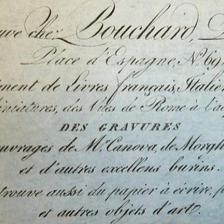 uve chez Bouchard,
Place d'Espagne, No. 69
ment de Livres français, Italie
iniatures, des Vues de Rome à l'a
DES GRAVURES
uvrages de Mr. Canova, de Morgh
et d'autres excellens burins.
trouve aussi du papier à écrire, p
et autres objets d'art.